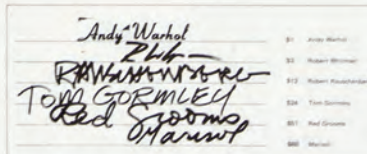 "Andy" Warhol
RAUSCHENBERG
TOM GORMLEY
Red Grooms
Marisol
Andy Warhol
Robert Whitman
Robert Rauschenberg
Tom Gormley
Red Grooms
Marisol